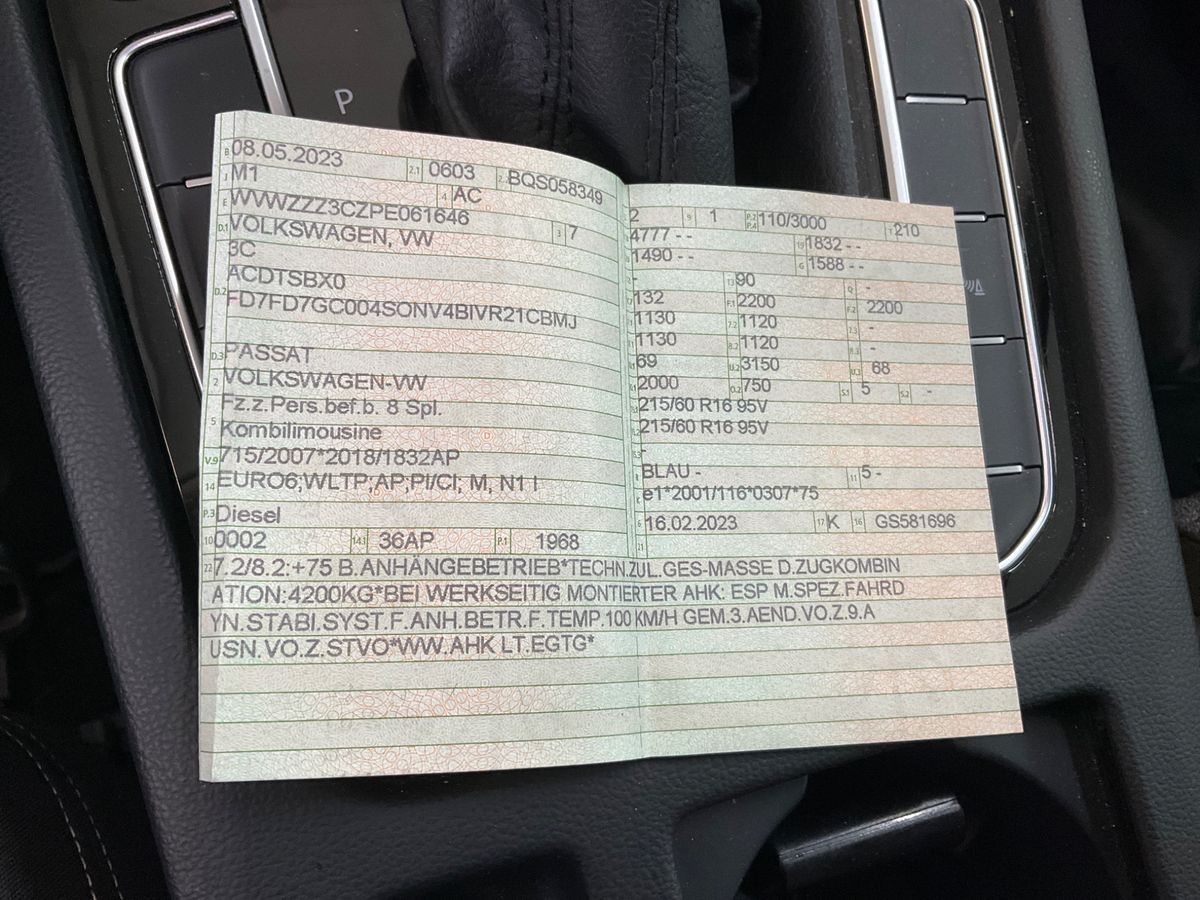 P
B 08.05.2023 2.1 0603 2. BQS058349
J M1 4 AC
E WVWZZZ3CZPE061646 3 7
D.1 VOLKSWAGEN, VW
3C
D.2 ACDTSBX0
FD7FD7GC004SONV4BIVR21CBMJ
D.3 PASSAT
2 VOLKSWAGEN-VW
5 Fz.z.Pers.bef.b. 8 Spl.
Kombilimousine
V.9 715/2007*2018/1832AP
14 EURO6;WLTP;AP;PI/CI; M, N1 I
P.3 Diesel
10 0002 14.1 36AP P.1 1968
2 9 1 P.2 P.4 110/3000 T 210
4777 - - 19 1832 - -
1490 - - G 1588 - -
- 13 90 Q -
132 F.1 2200 F.2 2200
1130 7.2 1120 7.3 -
1130 8.2 1120 8.3 -
69 U.2 3150 U.3 68
2000 O.2 750 S.1 5 S.2 -
215/60 R16 95V
215/60 R16 95V
-
BLAU - 11 5 -
K e1*2001/116*0307*75
6 16.02.2023 17 K 16 GS581696
21
22 7.2/8.2:+75 B.ANHÄNGEBETRIEB*TECHN.ZUL.GES-MASSE D.ZUGKOMBIN
ATION:4200KG*BEI WERKSEITIG MONTIERTER AHK: ESP M.SPEZ.FAHRD
YN.STABI.SYST.F.ANH.BETR.F.TEMP.100 KM/H GEM.3.AEND.VO.Z.9.A
USN.VO.Z.STVO*WW.AHK LT.EGTG*